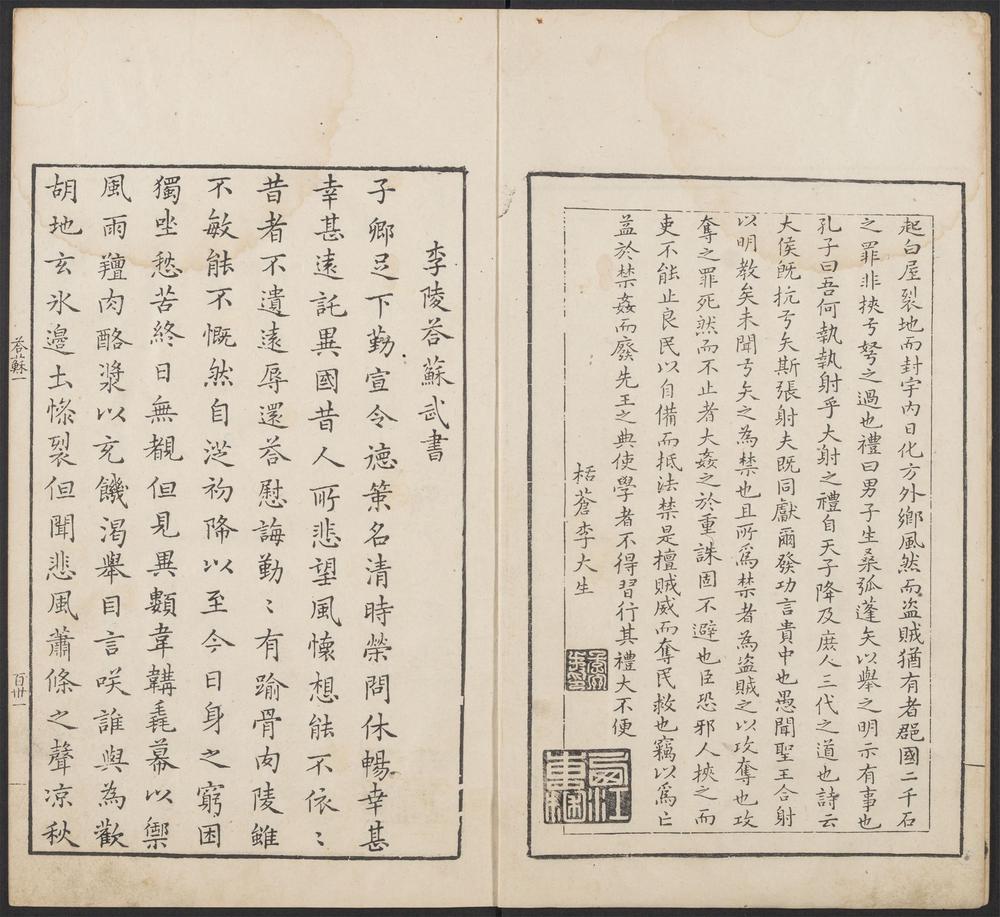 起白屋裂地而封宇內日化方外鄉風然而盜賊猶有者郡國二千石
之罪非挾弓弩之過也禮曰男子生桑弧蓬矢以舉之明示有事也
孔子曰吾何執執射乎大射之禮自天子降及庶人三代之道也詩云
大侯旣抗弓矢斯張射夫既同獻爾發功言貴中也愚聞聖王合射
以明教矣未聞弓矢之為禁也且所爲禁者為盜賊之以攻奪也攻
奪之罪死然而不止者大姦之於重誅固不避也臣恐邪人挾之而
吏不能止良民以自備而抵法禁是擅賊威而奪民救也竊以爲亡
益於禁姦而廢先王之典使學者不得習行其禮大不便
栝蒼李大生
李陵荅蘇武書
子卿足下勤宣令德策名清時榮問休暢幸甚
幸甚遠託異國昔人所悲望風懷想能不依〻
昔者不遺遠辱還荅慰誨勤〻有踰骨肉陵雖
不敏能不慨然自從初降以至今日身之窮困
獨坐愁苦終日無覩但見異類韋韝毳幕以禦
風雨羶肉酪漿以充饑渴舉目言咲誰與為歡
胡地玄氷邊土慘裂但聞悲風蕭條之聲凉秋
荅蘇一
百卅一